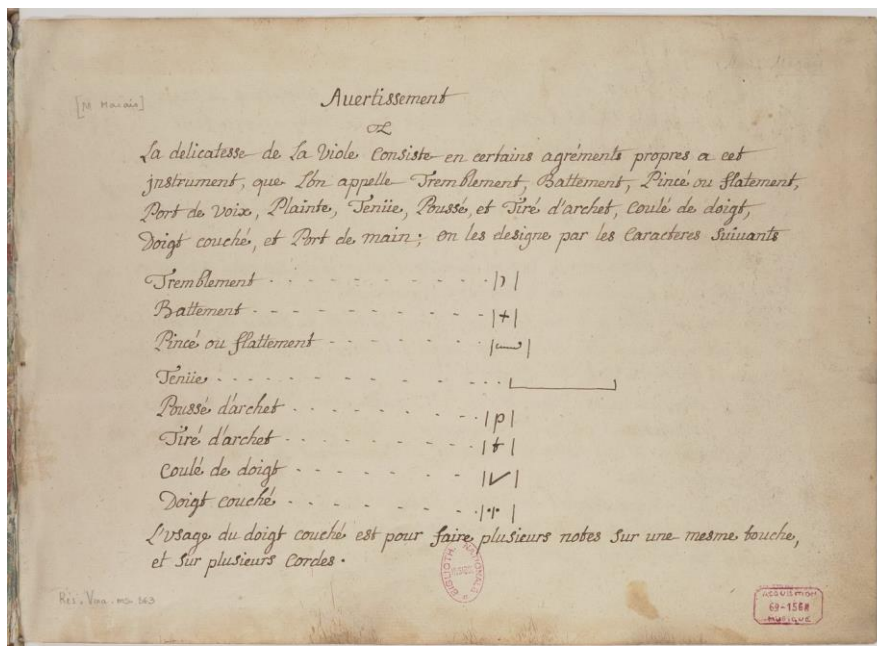 [M Marais]
Auertissement
La delicatesse de La Viole Consiste en certains agréments propres a cet
jnstrument, que L'on appelle Tremblement, Battement, Pincé ou flatement,
Port de Voix, Plainte, Tenüe, Poussé, et Tiré d'archet, Coulé de doigt,
Doigt couché, et Port de main; on les designe par les Caracteres Suiuants
Tremblement
Battement +
Pincé ou flattement
Tenüe
Poussé d'archet p
Tiré d'archet t
Coulé de doigt
Doigt couché
L'vsage du doigt couché est pour faire plusieurs notes Sur une mesme touche,
et Sur plusieurs Cordes.
BIBLIOTH. NATIONALE
Rés. Vma. ms. 863
ACQUISITION
69-1568
MUSIQUE